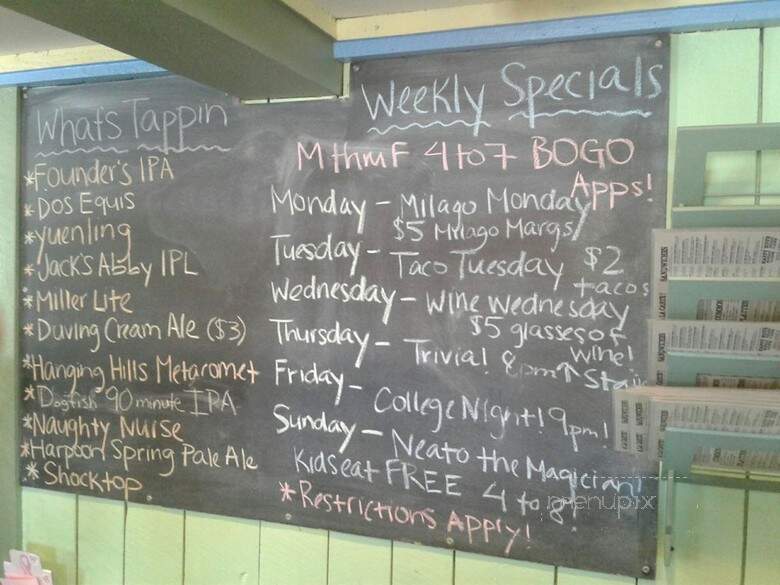 Whats Tappin
*Founder's IPA
*Dos Equis
*yuenling
*Jack's Abby IPL
*Miller Lite
*Duving Cream Ale ($3)
*Hanging Hills Metacomet
*Dogfish 90 minute IPA
*Naughty Nurse
*Harpoon Spring Pale Ale
*Shocktop
Weekly Specials
M thru F 4 to 7 BOGO
Apps!
Monday - Milago Monday
$5 Milago Margs!
Tuesday - Taco Tuesday $2
tacos
Wednesday - Wine Wednesday
$5 glasses of
wine!
Thursday - Trivia! 8pm ↑ Stairs
Friday - College Night! 9pm!
Sunday - Neato the Magician!
Kids eat FREE 4 to 8!
*Restrictions Apply!
menupix
SANDWICHES